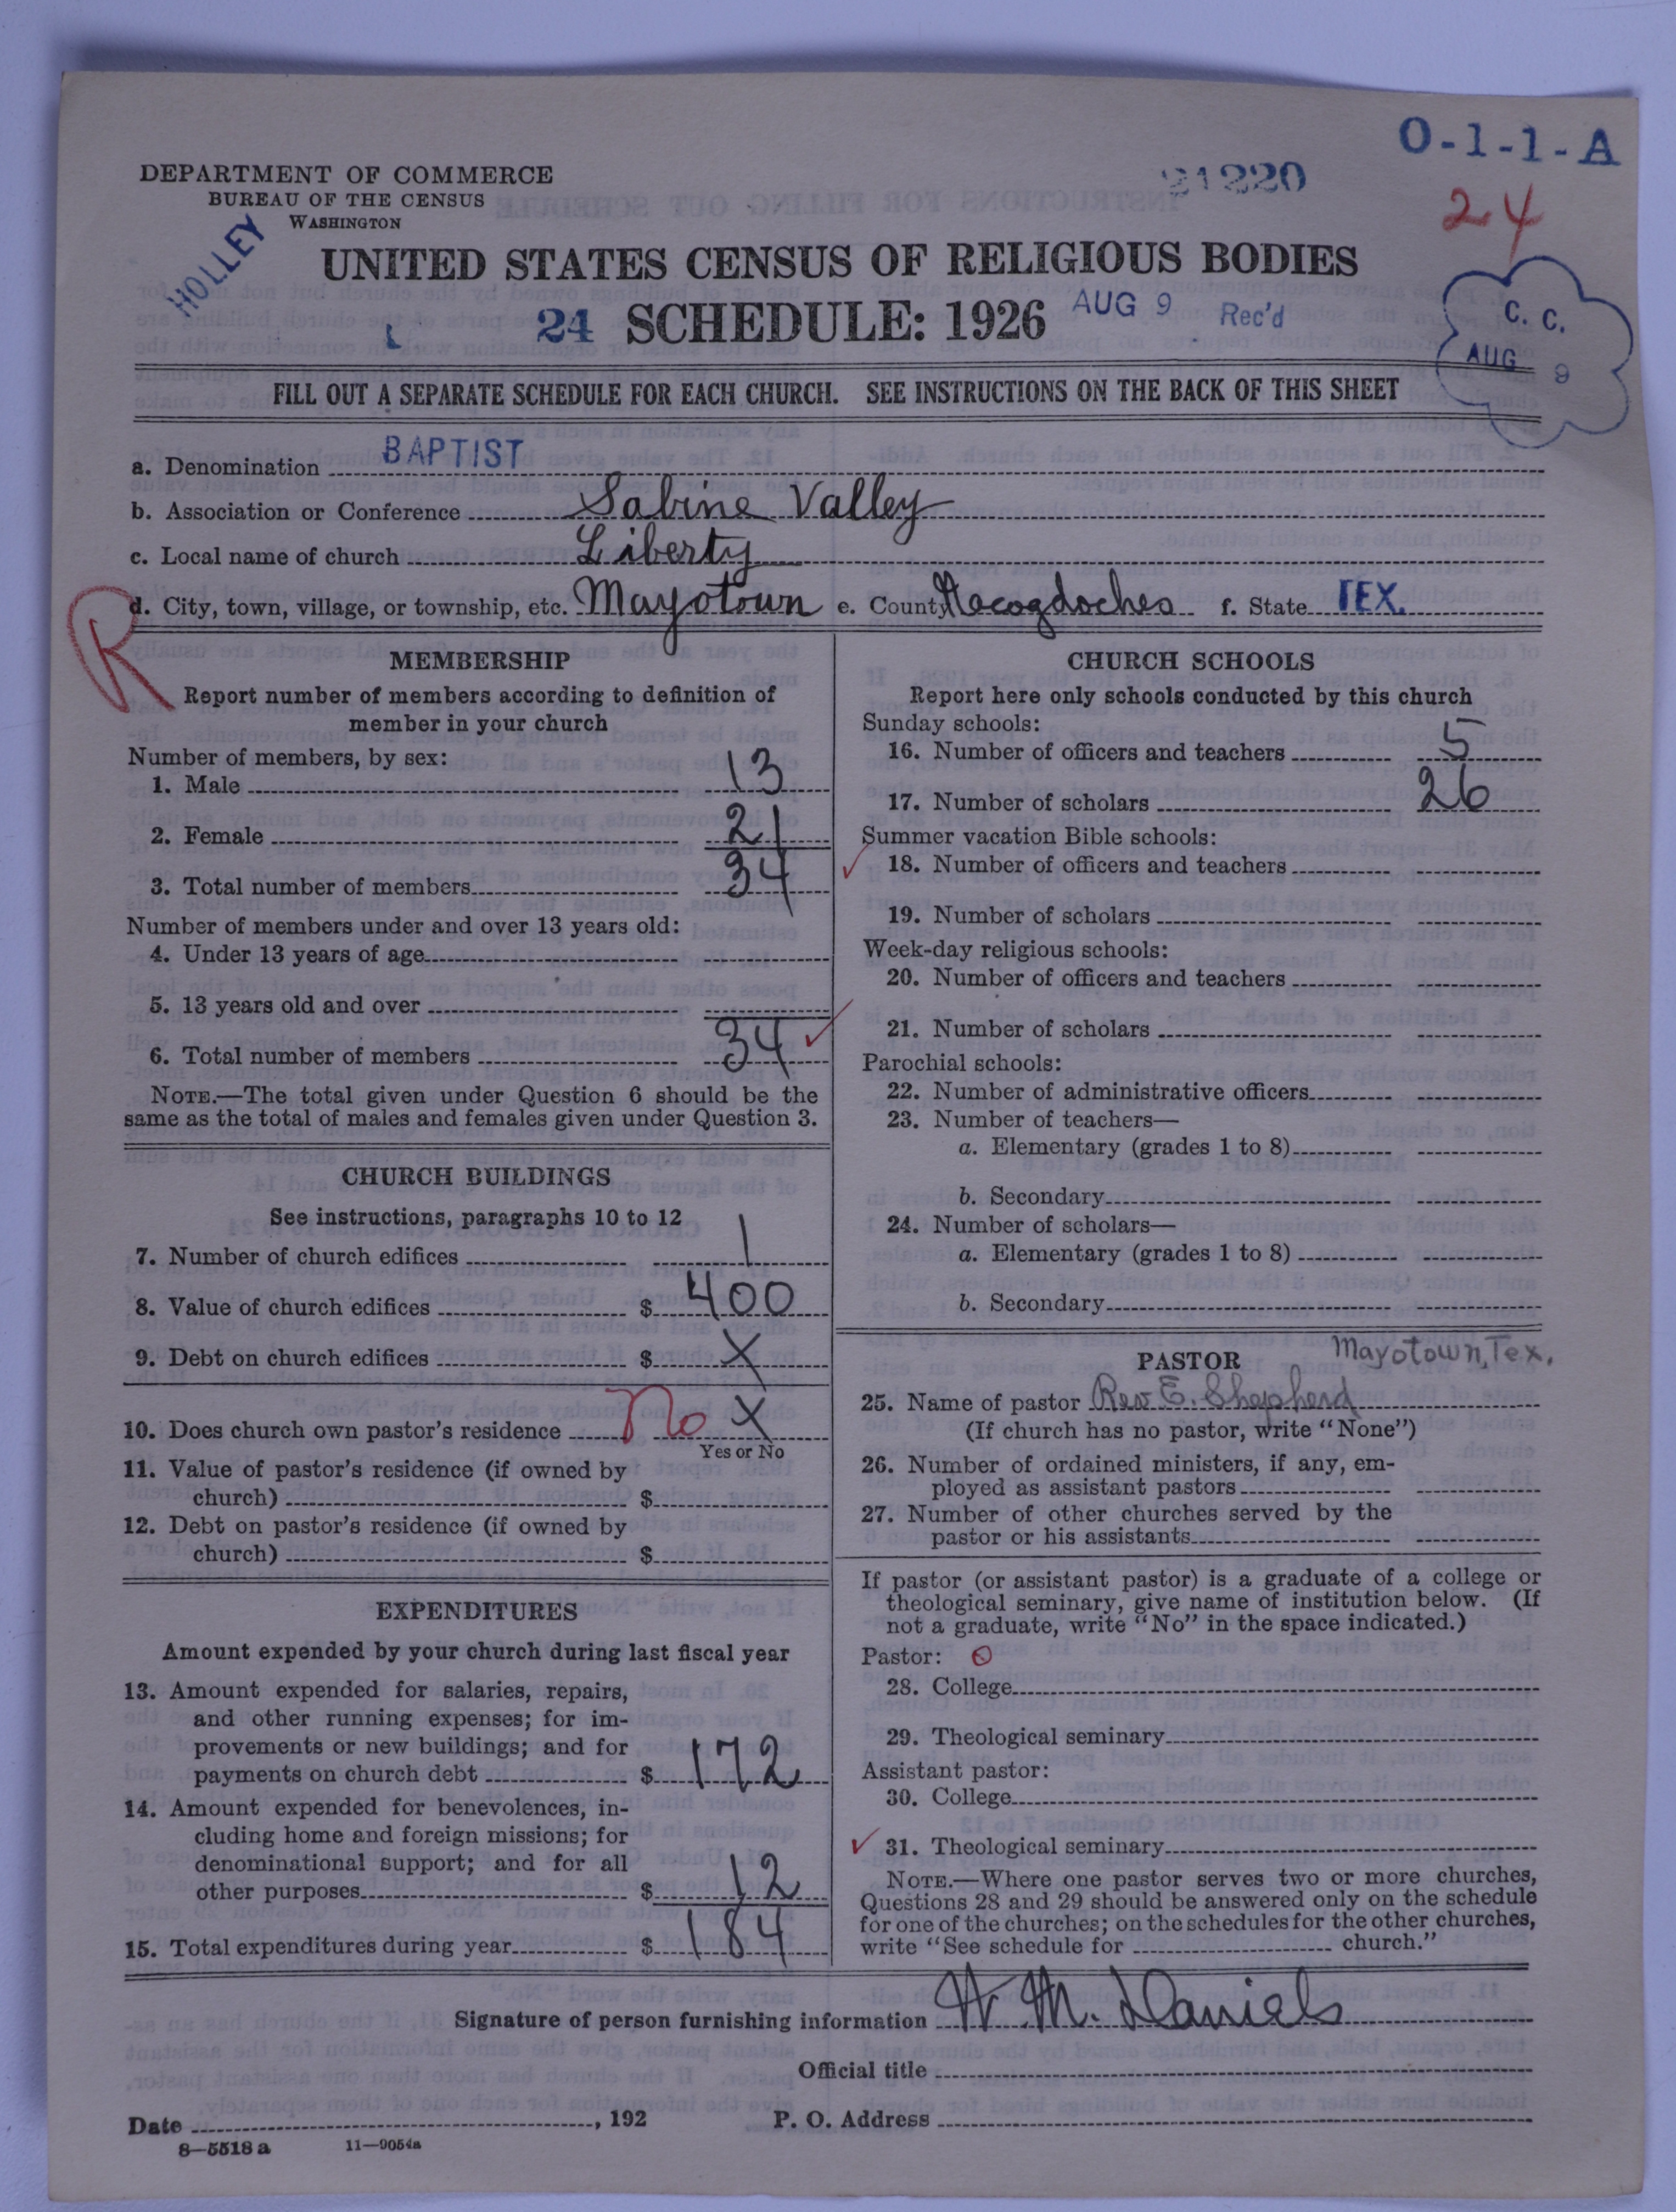 O-1-1-A
DEPARTMENT OF COMMERCE
BUREAU OF THE CENSUS
WASHINGTON
21220
24
HOLLEY
UNITED STATES CENSUS OF RELIGIOUS BODIES
24 SCHEDULE: 1926 AUG 9 Rec'd
C. C.
AUG 9
FILL OUT A SEPARATE SCHEDULE FOR EACH CHURCH. SEE INSTRUCTIONS ON THE BACK OF THIS SHEET
a. Denomination BAPTIST
b. Association or Conference Sabine Valley
c. Local name of church Liberty
d. City, town, village, or township, etc. Mayotown e. County Nacogdoches f. State TEX.
R
MEMBERSHIP
Report number of members according to definition of
member in your church
Number of members, by sex:
1. Male 13
2. Female 21
3. Total number of members 34
Number of members under and over 13 years old:
4. Under 13 years of age
5. 13 years old and over
6. Total number of members 34
NOTE.—The total given under Question 6 should be the
same as the total of males and females given under Question 3.
CHURCH BUILDINGS
See instructions, paragraphs 10 to 12
7. Number of church edifices 1
8. Value of church edifices $ 400
9. Debt on church edifices $ X
10. Does church own pastor's residence No X
Yes or No
11. Value of pastor's residence (if owned by
church) $
12. Debt on pastor's residence (if owned by
church) $
EXPENDITURES
Amount expended by your church during last fiscal year
13. Amount expended for salaries, repairs,
and other running expenses; for im-
provements or new buildings; and for
payments on church debt $ 172
14. Amount expended for benevolences, in-
cluding home and foreign missions; for
denominational support; and for all
other purposes $ 12
15. Total expenditures during year $ 184
CHURCH SCHOOLS
Report here only schools conducted by this church
Sunday schools:
16. Number of officers and teachers 5
17. Number of scholars 26
Summer vacation Bible schools:
18. Number of officers and teachers
19. Number of scholars
Week-day religious schools:
20. Number of officers and teachers
21. Number of scholars
Parochial schools:
22. Number of administrative officers
23. Number of teachers—
a. Elementary (grades 1 to 8)
b. Secondary
24. Number of scholars—
a. Elementary (grades 1 to 8)
b. Secondary
PASTOR Mayotown, Tex.
25. Name of pastor Rev E. Shepherd
(If church has no pastor, write "None")
26. Number of ordained ministers, if any, em-
ployed as assistant pastors
27. Number of other churches served by the
pastor or his assistants
If pastor (or assistant pastor) is a graduate of a college or
theological seminary, give name of institution below. (If
not a graduate, write "No" in the space indicated.)
Pastor:
28. College
29. Theological seminary
Assistant pastor:
30. College
31. Theological seminary
NOTE.—Where one pastor serves two or more churches,
Questions 28 and 29 should be answered only on the schedule
for one of the churches; on the schedules for the other churches,
write "See schedule for church."
Signature of person furnishing information W. M. Daniels
Official title
Date , 192 P. O. Address
8—5518 a 11—9054a